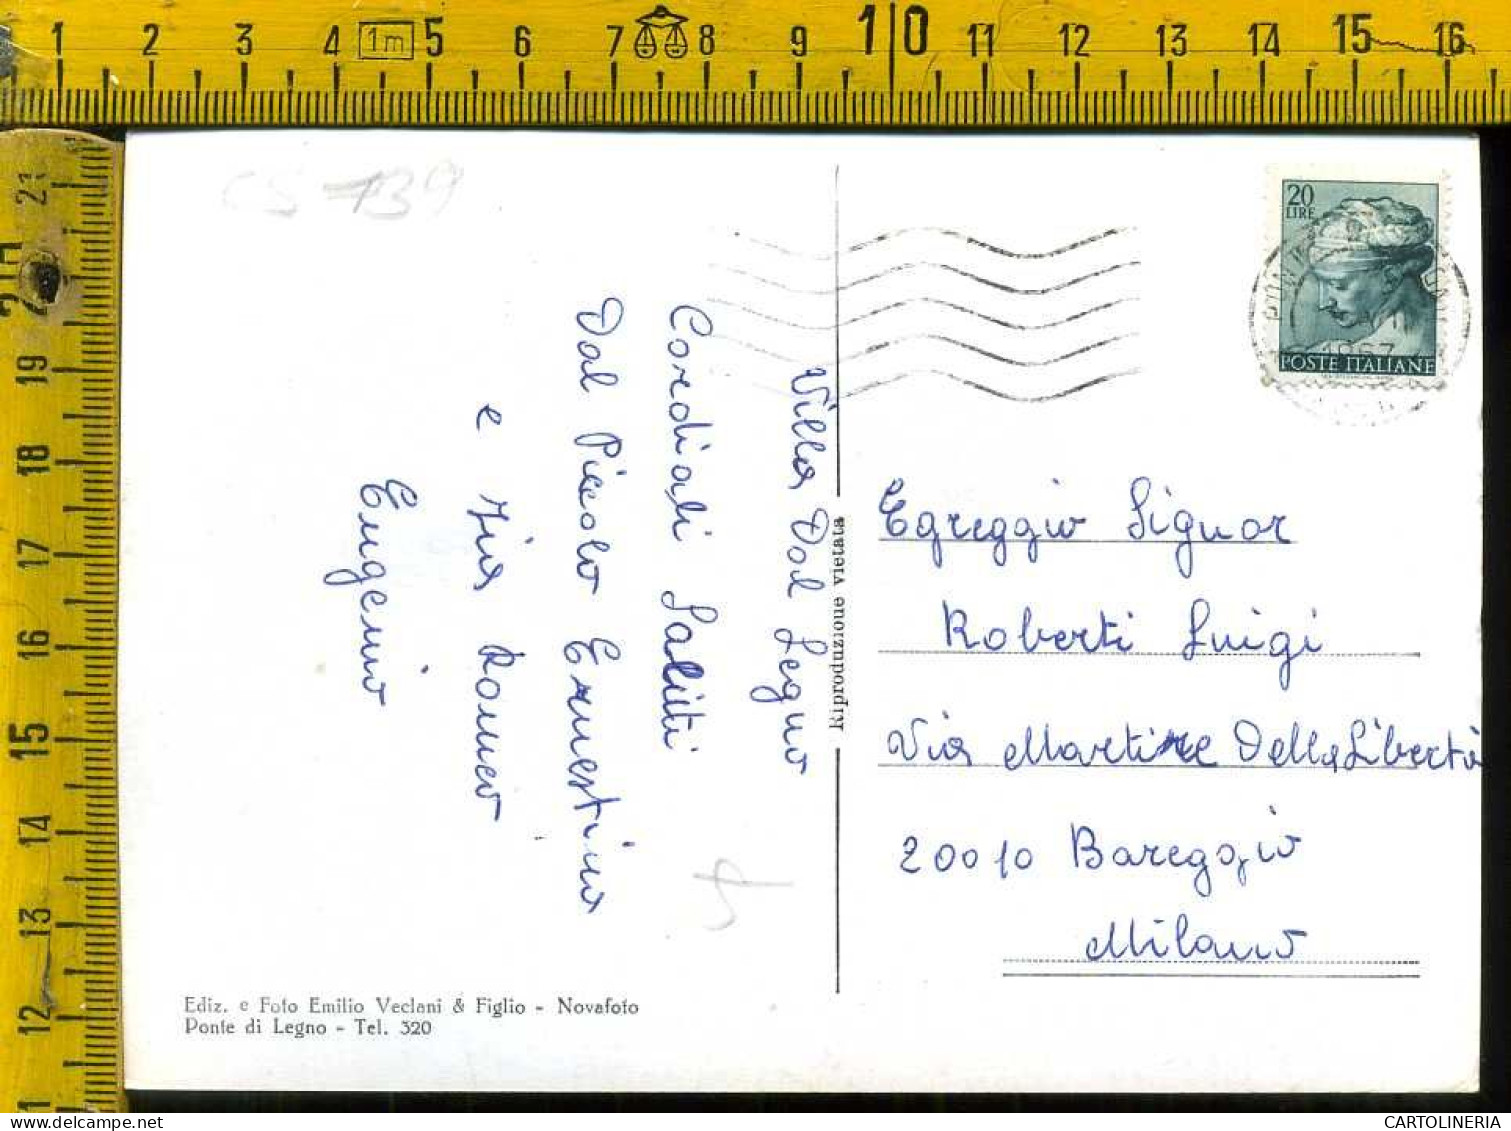 1 2 3 4 1m 5 6 7 8 9 10 11 12 13 14 15 16
21
20
19
18
17
16
15
14
13
12
CS-139
20
LIRE
1967
POSTE ITALIANE
Villa Dal Legno
Cordiali Saluti
Dal Piccolo Ernestino
e Zia Romeo
Eugenio
Riproduzione vietata
Egreggio Signor
Roberti Luigi
Via Martire Della Libertà
20010 Bareggio
Milano
Ediz. e Foto Emilio Veclani & Figlio - Novafoto
Ponte di Legno - Tel. 320
delcampe.net
CARTOLINERIA